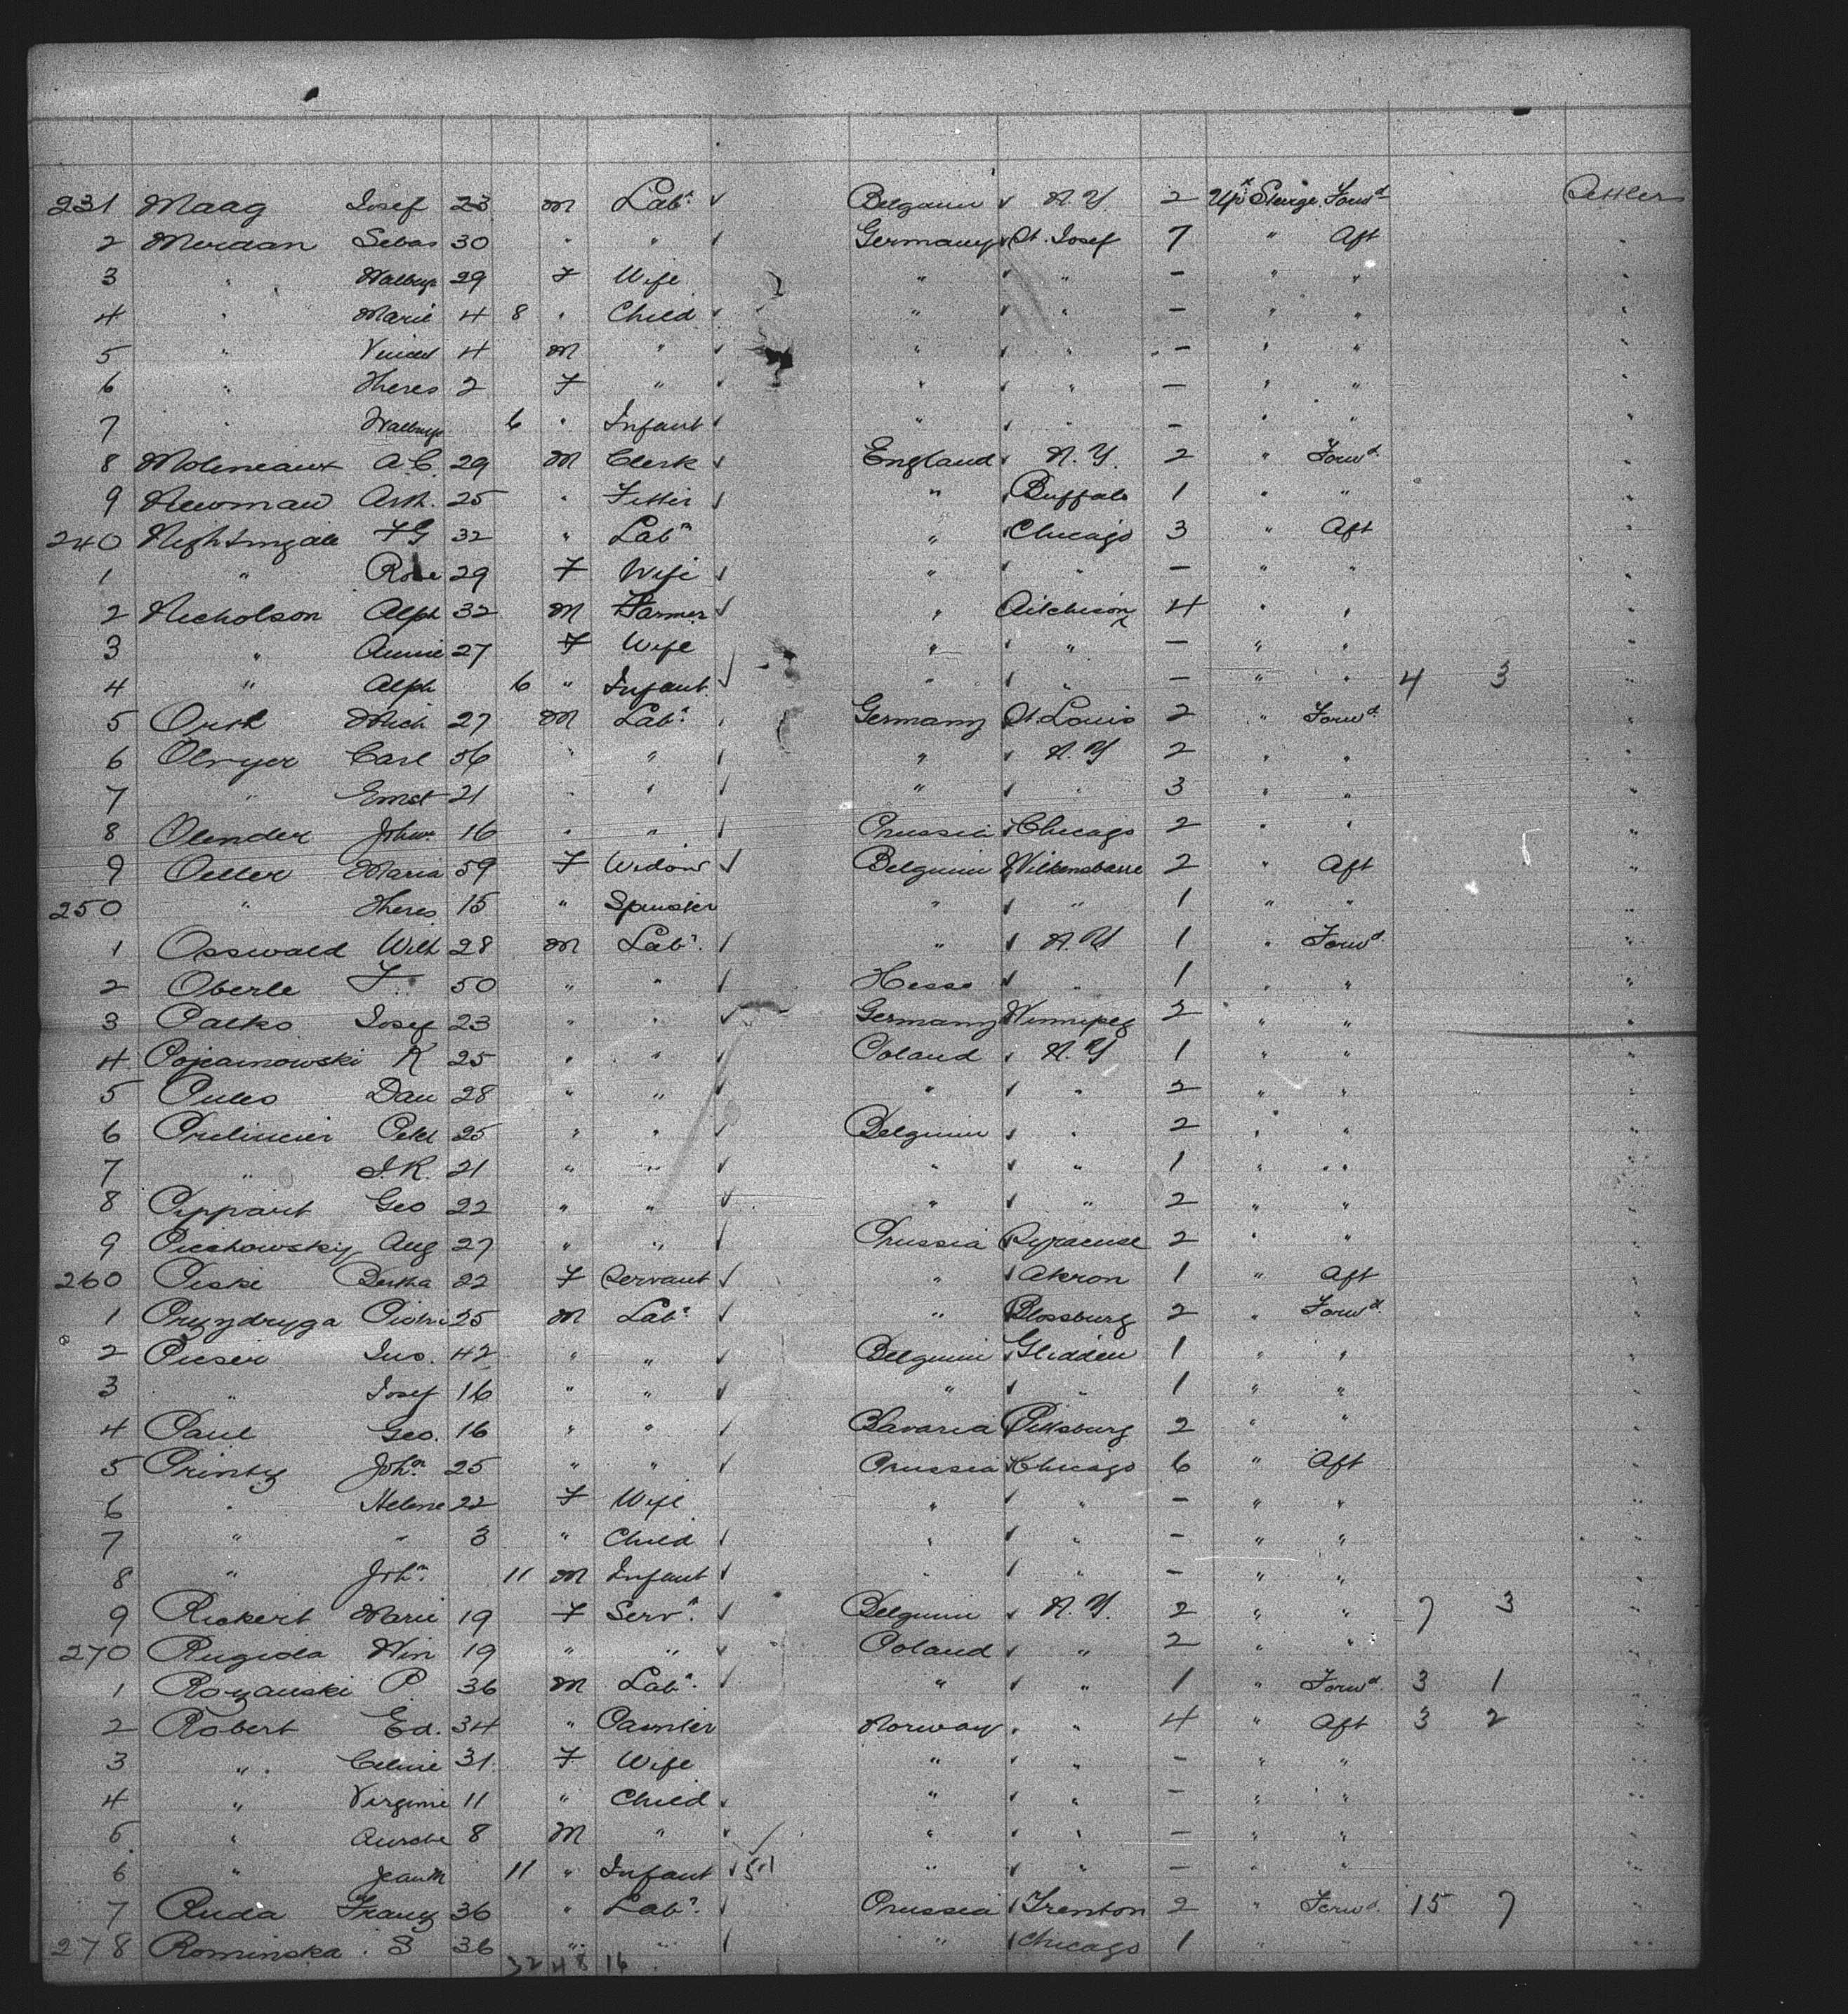 231 Maag Josef 23 M Labr ✓ Belgium ✓ N.Y. 2 Upr Steerge Forwd Settlers
2 Merdan Sebas 30 " " ✓ Germany ✓ St. Josef 7 " Aft "
3 " Walburg 29 F Wife " ✓ " — " " "
4 " Marie 4 8 " Child ✓ " ✓ " — " " "
5 " 4 M " ✓ " ✓ " — " " "
6 " Theres 2 F " ✓ " ✓ " — " " "
7 " Walburg 6 " Infant ✓ " ✓ " — " " "
8 Molineaux A.C. 29 M Clerk ✓ England ✓ N.Y. 2 " Forwd "
9 Newman Arth. 25 " Fitter ✓ " ✓ Buffalo 1 " " "
240 Nightingale F G 32 " Labr " ✓ Chicago 3 " Aft "
1 " Rose 29 F Wife ✓ " ✓ " — " " "
2 Nicholson Alph 32 M Farmer ✓ " Aitchison 4 " " "
3 " Annie 27 F Wife " ✓ " — " " "
4 " Alph 6 " Infant ✓ " ✓ " — " " 4 3 "
5 Orth Mich 27 M Labr ✓ Germany St. Louis 2 " Forwd "
6 Carl 56 " " ✓ " ✓ N.Y 2 " " "
7 " Ernst 21 " " ✓ " ✓ " 3 " " "
8 Olender Johan 16 " " ✓ Prussia ✓ Chicago 2 " " "
9 Oeller Maria 59 F Widow ✓ Belgium Wilkensbarre 2 " Aft "
250 " Theres 15 " Spinster " ✓ " 1 " " "
1 Osswald Wilh 28 M Labr. ✓ " ✓ N.Y 1 " Forwd "
2 Oberle F. 50 " " ✓ Hesse ✓ " 1 " " "
3 Palko Josef 23 " " ✓ Germany Winnipeg 2 " " "
4 Pojcarnowski K 25 " " ✓ Poland ✓ N.Y 1 " " "
5 Dan 28 " " ✓ " ✓ " 2 " " "
6 25 " " ✓ Belgium ✓ " 2 " " "
7 " J.R. 21 " " ✓ " ✓ " 1 " " "
8 Pippart Geo 22 " " ✓ " ✓ " 2 " " "
9 Piechowsky Aug 27 " " ✓ Prussia Syracuse 2 " " "
260 Piske Bertha 22 F Servant ✓ " ✓ Akron 1 " Aft "
1 Przydryga 25 M Labr ✓ " Blossburg 2 " Forwd "
2 Pieser Jno. 42 " " ✓ Belgium ✓ Glidden 1 " " "
3 " Josef 16 " " ✓ " ✓ " 1 " " "
4 Paul Geo. 16 " " ✓ Bavaria Pittsburg 2 " " "
5 Printz Johan 25 " " ✓ Prussia ✓ Chicago 6 " Aft "
6 " Helene 22 F Wife " ✓ " — " " "
7 " " 3 " Child ✓ " ✓ " — " " "
8 " Johan 11 M Infant ✓ " ✓ " — " " "
9 Rickert Marie 19 F Servt ✓ Belgium ✓ N.Y. 2 " " 7 3 "
270 Rugida Win 19 " " ✓ Poland ✓ " 2 " " "
1 Rozanski P 36 M Labr. ✓ " ✓ " 1 " Forwd 3 1 "
2 Robert Ed. 34 " Painter Norway ✓ " 4 " Aft 3 2 "
3 " Celine 31 F Wife " ✓ " — " " "
4 " Virginie 11 " Child ✓ " ✓ " — " " "
5 " 8 M " ✓ " ✓ " — " " "
6 " 11 " Infant ✓ " ✓ " — " " "
7 Ruda Franz 36 " Labr. ✓ Prussia ✓ Trenton 2 " Forwd. 15 7 "
278 Rominska S 36 " " ✓ " ✓ Chicago 1 " " "
32 48 16